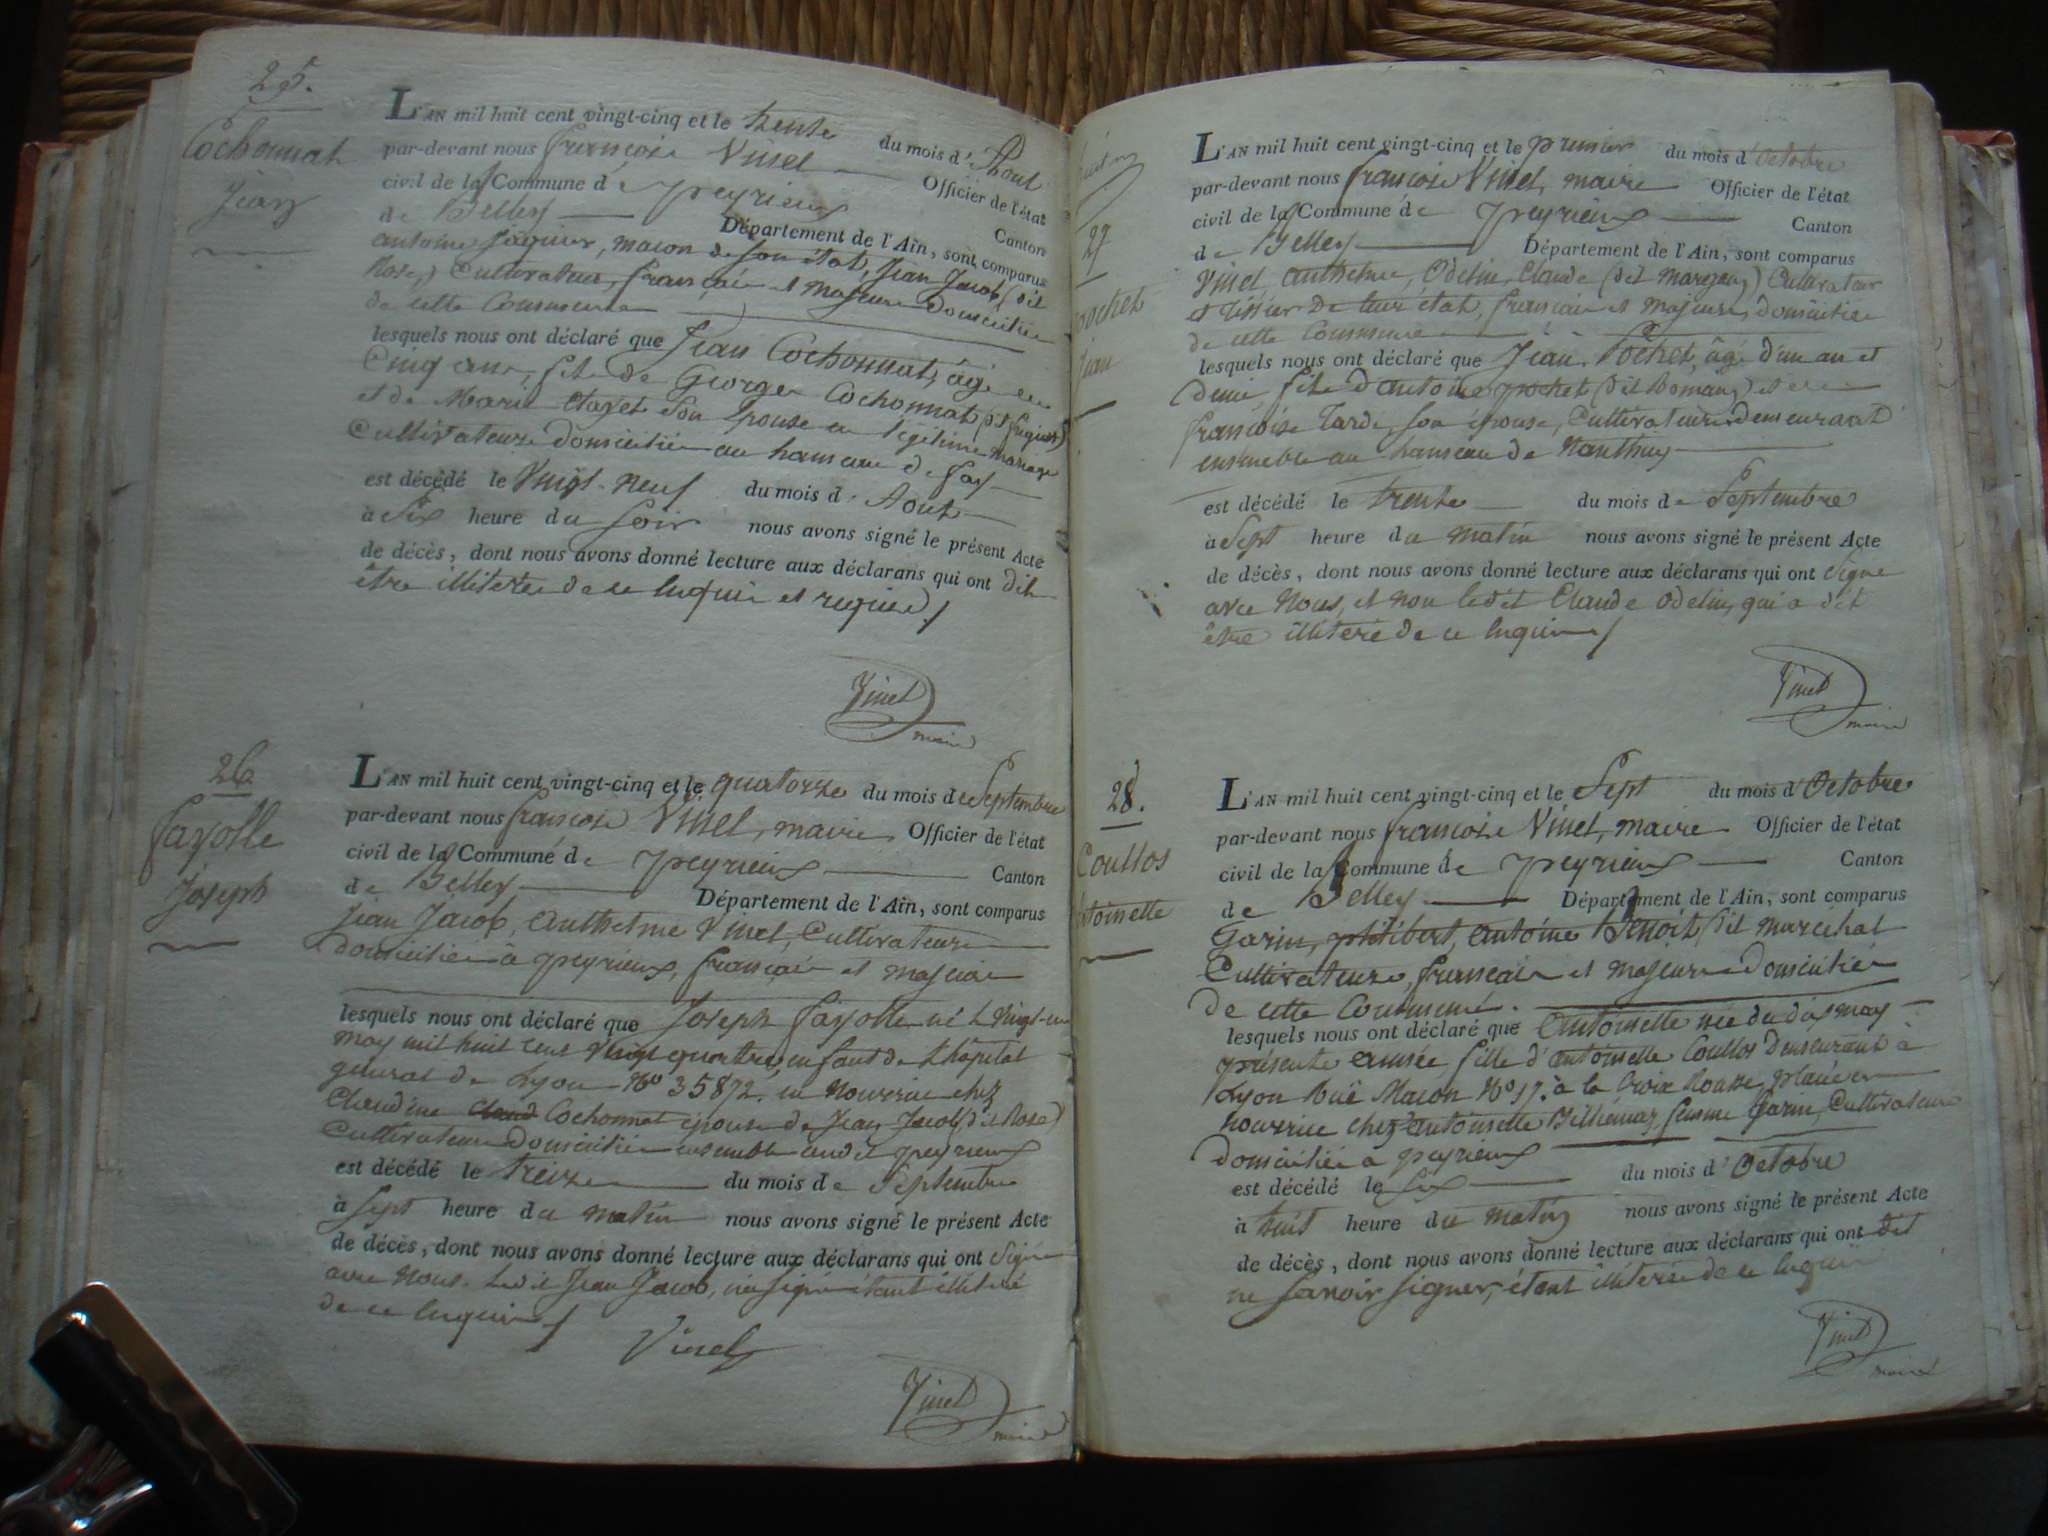 25.
Cochonnat
Jean
L'AN mil huit cent vingt-cinq et le trente du mois d'Aout
par-devant nous françois Vinet Officier de l'état
civil de la Commune de peyrieux Canton
de Belley Département de l'Ain, sont comparus
antoine Jaquier, macon de son état, Jean Jacob (dit
Rose,) Cultivateur, français et majeurs domiciliés
de cette Commune
lesquels nous ont déclaré que Jean Cochonnat, âgé de
Cinq ans, fils de George Cochonnat
et de Marie Clayet son Epouse en légitime mariage
Cultivateurs domiciliés au hameau de fay
est décédé le Vingt-neuf du mois d'Aout
à Six heure du Soir nous avons signé le présent Acte
de décès, dont nous avons donné lecture aux déclarans qui ont dit
être illiteré de ce enquis et requis
Vinet
maire
26
fayolle
Joseph
L'AN mil huit cent vingt-cinq et le quatorze du mois de Septembre
par-devant nous françois Vinet, maire Officier de l'état
civil de la Commune de peyrieux Canton
de Belley Département de l'Ain, sont comparus
Jean Jacob, Anthelme Vinet, Cultivateurs
domiciliés à peyrieux, français et majeurs
lesquels nous ont déclaré que Joseph fayolle né le Vingt-un
may mil huit cent Vingt quatre, enfant de l'hôpital
général de Lyon No 35872. en nourrice chez
Claudine Cochonnat épouse de Jean Jacob (dit Rose)
Cultivateurs domiciliés ensemble audit peyrieux
est décédé le treize du mois de Septembre
à Sept heure du matin nous avons signé le présent Acte
de décès, dont nous avons donné lecture aux déclarans qui ont signé
avec nous. Ledit Jean Jacob, n'a signé étant illiteré
de ce enquis
Vinet
Vinet
maire
27
pochet
Jean
L'AN mil huit cent vingt-cinq et le premier du mois d'Octobre
par-devant nous françois Vinet, maire Officier de l'état
civil de la Commune de peyrieux Canton
de Belley Département de l'Ain, sont comparus
Vinet, Anthelme, Odelin, Claude (dit) Cultivateur
et Tissier de leur état, français et majeurs, domiciliés
de cette Commune
lesquels nous ont déclaré que Jean Pochet, âgé d'un an et
demi, fils d'antoine pochet (dit Romang) et de
françoise Tardi, son épouse, Cultivateurs demeurant
ensemble au hameau de Nanthuy
est décédé le trente du mois de Septembre
à Sept heure du matin nous avons signé le présent Acte
de décès, dont nous avons donné lecture aux déclarans qui ont signé
avec nous, et non ledit Claude Odelin, qui a dit
être illiteré de ce enquis
Vinet
maire
28.
Coullos
Antoinette
L'AN mil huit cent vingt-cinq et le Sept du mois d'Octobre
par-devant nous françois Vinet, maire Officier de l'état
civil de la Commune de peyrieux Canton
de Belley Département de l'Ain, sont comparus
Garin, philibert, antoine Benoit (dit maréchal
Cultivateurs, français et majeurs domiciliés
de cette Commune.
lesquels nous ont déclaré que Antoinette née du dix may
présente année, fille d'antoinette Coullos demeurant à
Lyon Rue Macon No 17. à la Croix Rousse, placée en
nourrice chez antoinette Billiémaz, femme Garin, Cultivateurs
domiciliés à peyrieux
est décédé le Six du mois d'Octobre
à huit heure du matin nous avons signé le présent Acte
de décès, dont nous avons donné lecture aux déclarans qui ont dit
ne savoir signer, étant illiterés de ce enquis
Vinet
maire